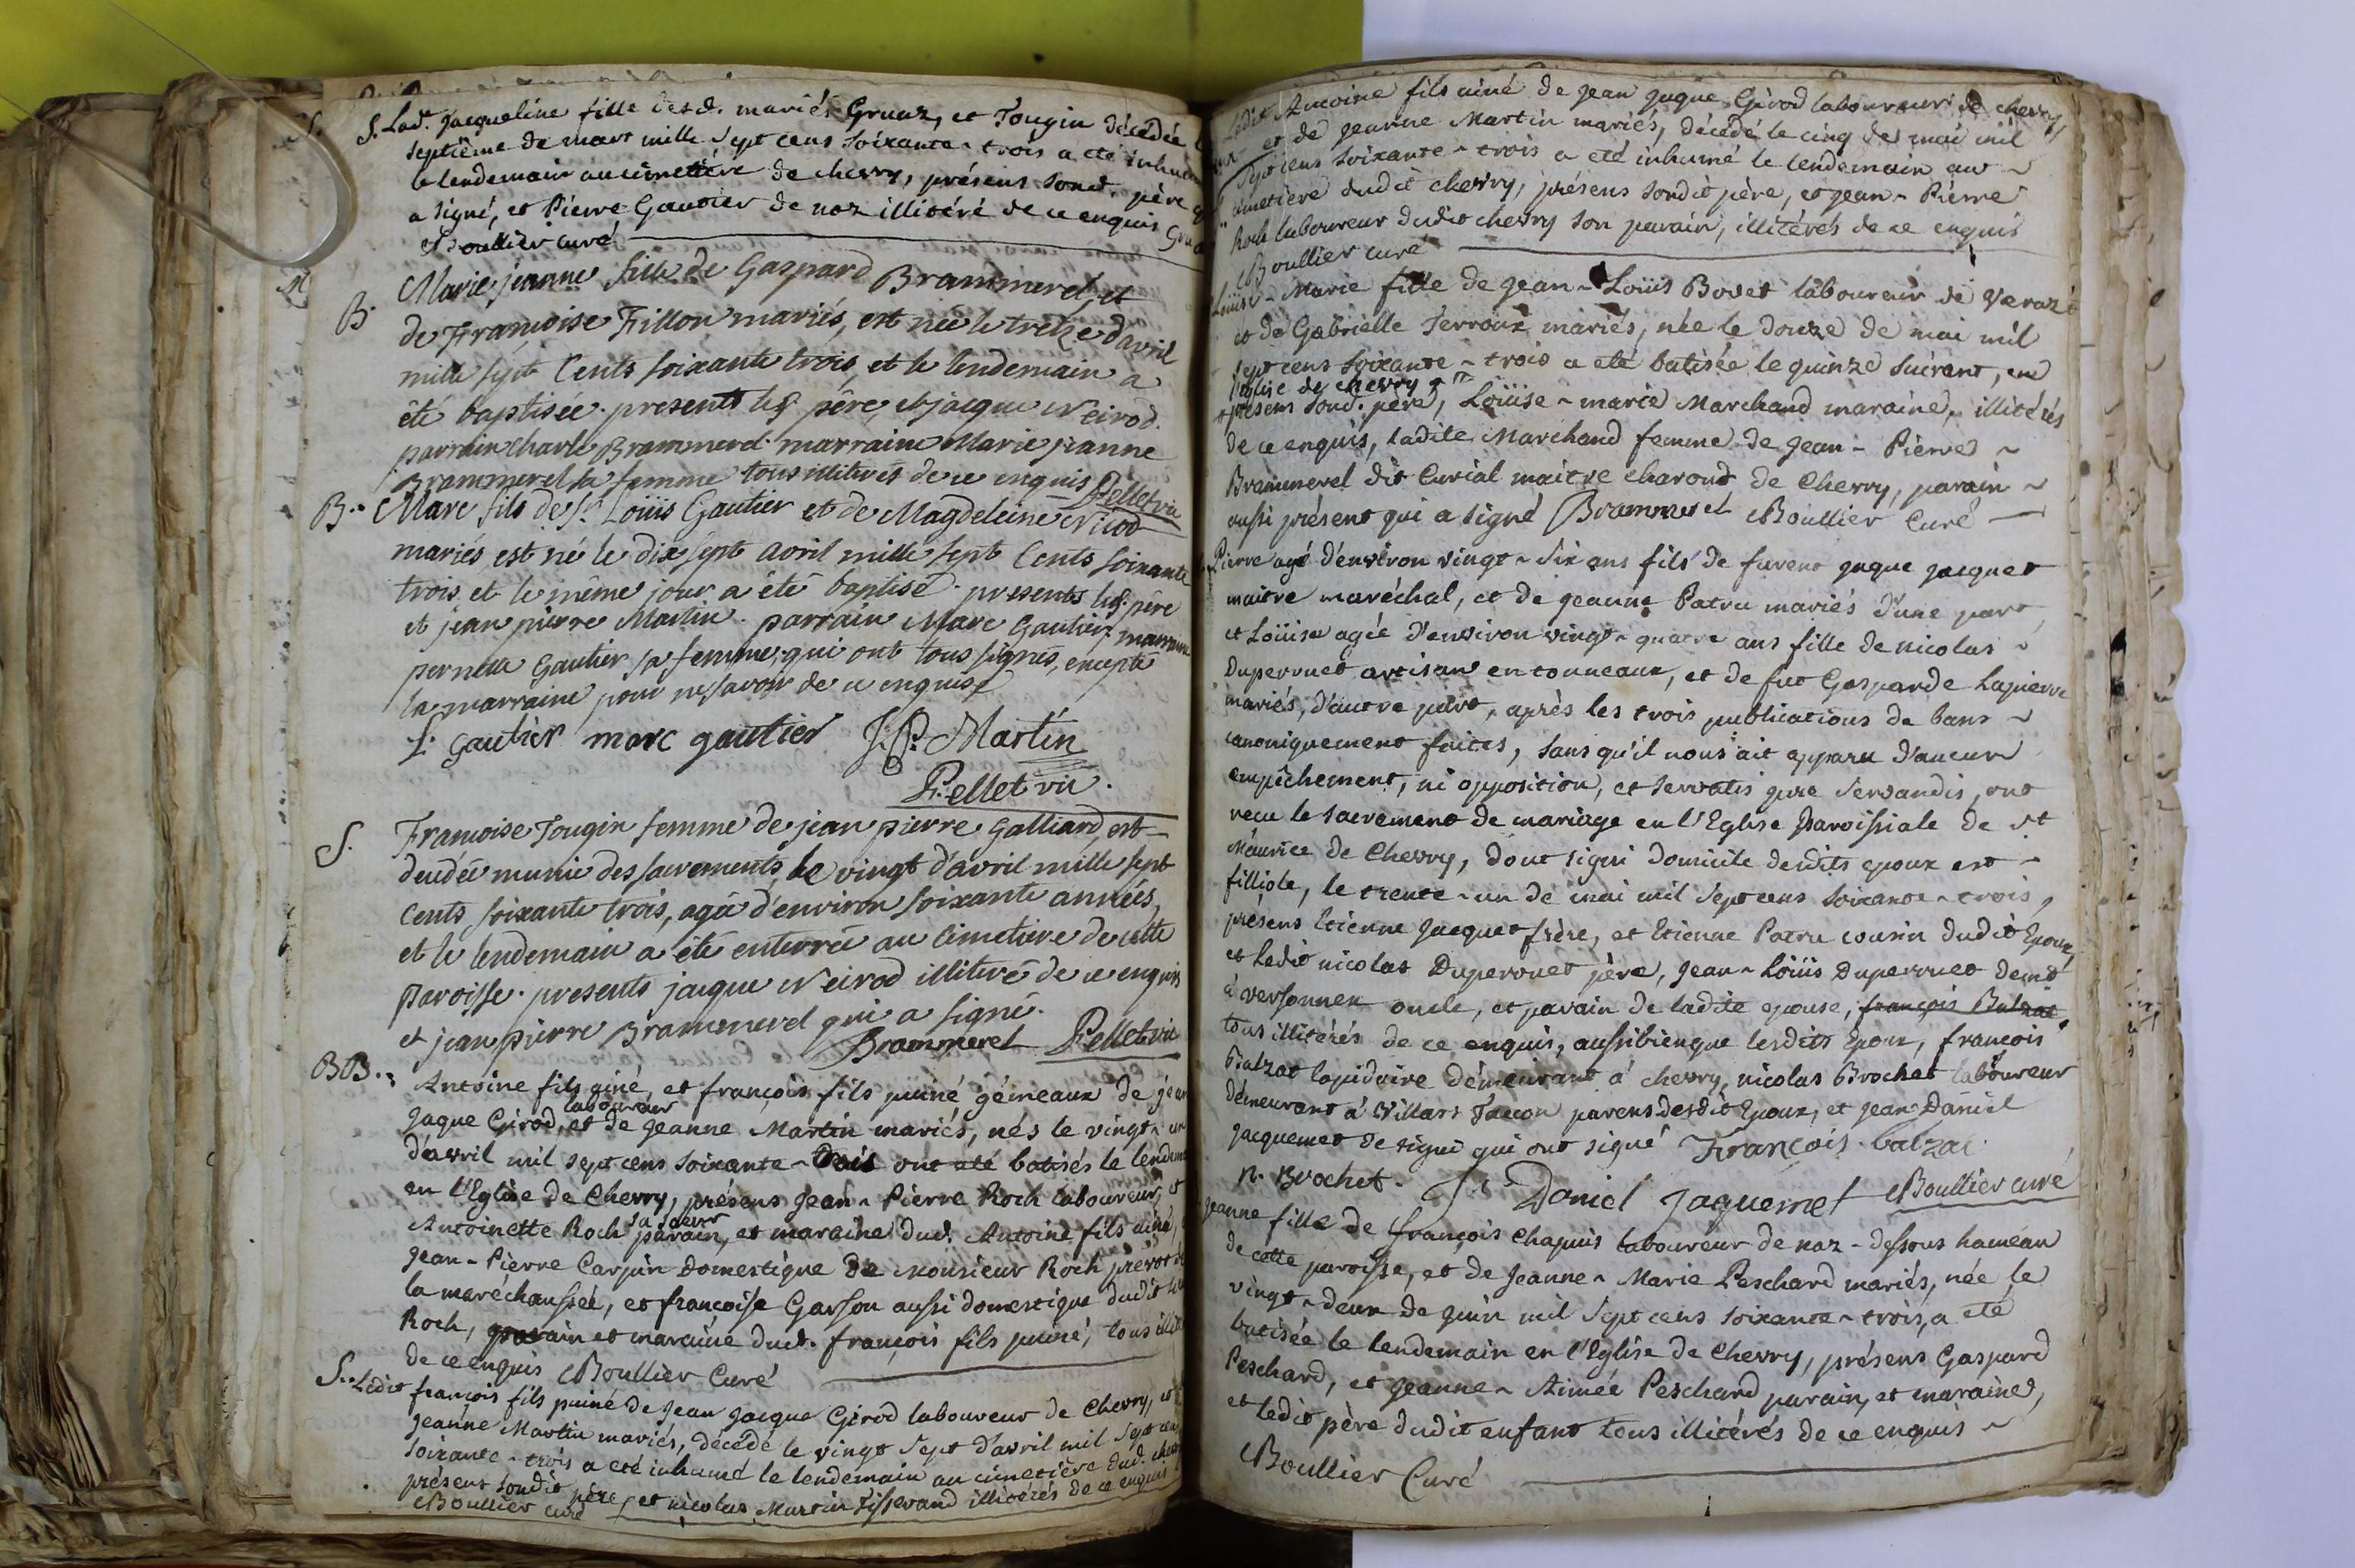 S. Lad.e Jacqueline fille desd. mariés Gruaz, et Tougin décédée
septième de mars mille Sept cens soixante-trois a eté
le lendemain au cimetière de chevry, présens Sond. père
a signé, et Pierre Gautier de naz illitéré de ce enquis
Boullier curé
B. Marie jeanne fille de Gaspard Brammerel, et
de Françoise Fillon mariés, est née le treize d'avril
mille sept Cents soixante trois, et le lendemain a
été baptisée. presents led. père, et jacque Neirod.
parrain Charle Brammerel marraine Marie jeanne
Brammerel sa femme tous illiterés de ce enquis Pellet vic
B. Marc fils de Sr. Loüis Gautier et de Magdeleine Nicod
mariés, est né le dix sept avril mille sept Cents soixante
trois, et le même jour a été baptisé. presents led. père
et jean pierre Martin. parrain Marc Gautier, marraine
pernette Gautier sa femme, qui ont tous signés, excepté
la marraine pour ne savoir de ce enquise
L. Gautier marc gautier J. P. Martin
Pellet vic.
S. Françoise Tougin femme de jean pierre Galliard, est
decedée munie des sacrements, le vingt d'avril mille sept
Cents soixante trois, agée d'environ soixante années,
et le lendemain a été enterrée au Cimetiere de cette
paroisse. presents jacque Neirod illiteré de ce enquis
et jean pierre Brammerel qui a signé.
Brammerel Pellet vic
BB. Antoine fils ainé, et françois fils puiné gémeaux de jean
laboureur
Jaque Girod, et de Jeanne Martin mariés, nés le vingt-un
d'avril mil sept cens soixante-trois ont eté batisés le
en l'Eglise de Chevry, présens Jean-Pierre Roch laboureur, et
sa soeur
Antoinette Roch parain, et maraine dud. Antoine fils ainé,
Jean-Pierre Carjin Domestique de Monsieur Roch prévôt de
la maréchaussée, et françoise Garson aussi domestique dudit
Roch, parain et maraine dud. françois fils puiné, tous
de ce enquis Boullier Curé
S. Ledit françois fils puiné de Jean Jacque Girod laboureur de Chevry, et
Jeanne Martin mariés, décédé le vingt Sept d'avril mil Sept cens
soixante-trois a eté inhumé le lendemain au cimetière dud.
présens Sondit père, et nicolas Martin tisserand illitérés de ce enquis
Boullier curé
Ledit Antoine fils ainé de Jean Jaque Girod laboureur de chevry,
et de Jeanne Martin mariés, décédé le cinq de mai mil
Sept cens soixante-trois a eté inhumé le lendemain au
cimetière dudit chevry, présens Sondit père, et Jean-Pierre
Roch laboureur dudit chevry son parain, illitérés de ce enquis
Boullier curé
Loüise-Marie fille de Jean-Loüis Bovet laboureur de Verazé
et de Gabrielle Terroux mariés, née le douze de mai mil
sept cens soixante-trois a eté batisée le quinze Suivant, en
l'Eglise de Chevry
présens Sond. père, Loüise-marie Marchand maraine, illitérés
de ce enquis, ladite Marchand femme de Jean-Pierre
Brammerel dit Curial maitre charont de Chevry, parain
aussi présent qui a signé Brammerel Boullier Curé
Pierre agé d'environ vingt-Six ans fils de furent Jaque Jacquet
maitre maréchal, et de Jeanne Patru mariés d'une part,
et Loüise agée d'environ vingt-quatre ans fille de nicolas
Duperruet artisan en tonneaux, et de fut Gasparde Lapierre
mariés, d'autre part, après les trois publications de bans
canoniquement faites, sans qu'il nous ait apparu d'aucun
empêchement, ni opposition, et servatis jure servandis, ont
recu le sacrement de mariage en l'Eglise Paroissiale de St
Maurice de Chevry, dont Signi domicile desdits epoux est
filliole, le trente-un de mai mil Sept cens soixante-trois,
présens Etienne Jacquet frère, et Etienne Patru cousin dudit Epoux,
et Ledit nicolas Duperruet père, Jean-Loüis Duperruet demt
à versonnex oncle, et parain de ladite epouse, françois Balzat,
tous illitérés de ce enquis, aussi bien que lesdits Epoux, françois
Balzat lapidaire demeurant à chevry, nicolas Brochet laboureur
demeurant à Villars Tacon parens desdit Epoux, et Jean Daniel
Jacquemet de signi qui ont signé François balzac
n. Brochet. Jn Daniel Jaquemet Boullier curé
Jeanne fille de françois Chapuis laboureur de naz-dessous hameau
de cette paroisse, et de Jeanne-Marie Peschard mariés, née le
vingt-deux de Juin mil Sept cens soixante-trois, a eté
batisée le lendemain en l'Eglise de Chevry, présens Gaspard
Peschard, et Jeanne-Aimée Peschard parain, et maraine,
et ledit père dudit enfant tous illitérés de ce enquis
Boullier Curé